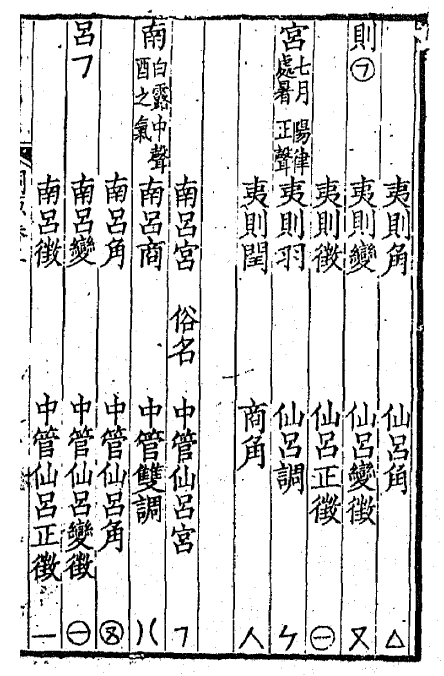 夷則角 仙呂角 △
則㋆ 夷則變 仙呂變徵 又
夷則徵 仙呂正徵 ㊀
宮七月 陽律處暑 正聲 夷則羽 仙呂調 ㄣ
夷則閏 商角 人
南呂宮 俗名 中管仙呂宮 ㄱ
南白露中聲酉之氣 南呂商 中管雙調
南呂角 中管仙呂角
呂ㄱ 南呂變 中管仙呂變徵 ㊀
南呂徵 中管仙呂正徵 一